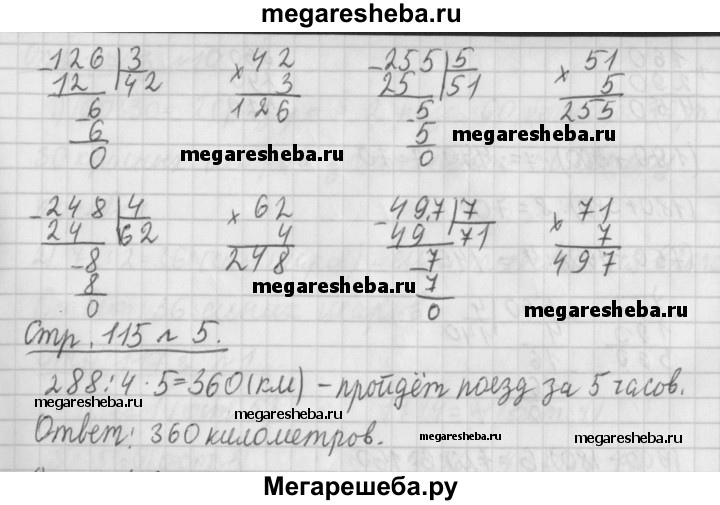 megaresheba.ru
-126 | 3    × 42    -255 | 5    × 51
12 | 42    3    25 | 51    5
-6    126    -5    255
6    5
0    0
megaresheba.ru    megaresheba.ru
-248 | 4    × 62    -497 | 7    × 71
24 | 62    4    49 | 71    7
-8    248    -7    497
8    7
0    0
megaresheba.ru    megaresheba.ru
Стр. 115 № 5.
288:4·5=360(км) – пройдёт поезд за 5 часов.
megaresheba.ru    megaresheba.ru
Ответ: 360 километров.
megaresheba.ru    megaresheba.ru
Мегарешеба.ру